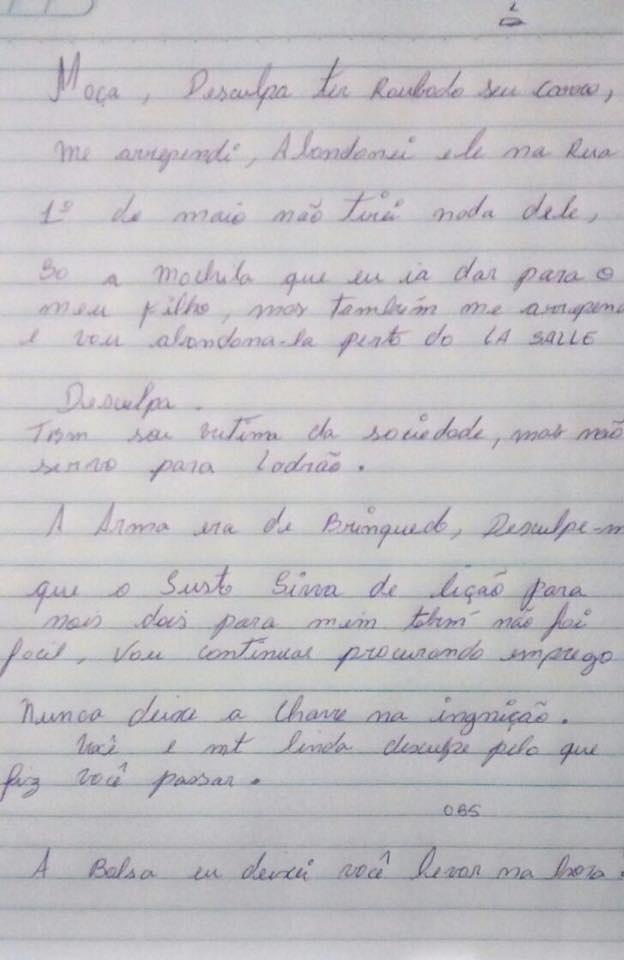 Moça, Desculpa ter Roubado seu carro,
me arrependi, Abandonei ele na Rua
1º de maio não tirei nada dele,
So a mochila que eu ia dar para o
meu filho, mas também me arrepend
e vou abandona-la perto do LA SALLE
Desculpa.
TBM sou vitima da sociedade, mas não
sirvo para Ladrão.
A Arma era de Brinquedo, Desculpe-m
que o Susto Sirva de lição para
nois dois para mim tbm não foi
facil, Vou continuar procurando emprego
Nunca deixe a Chave na ingnição.
Você e mt linda desculpe pelo que
fiz você passar.
OBS
A Bolsa eu deixei você levar na hora